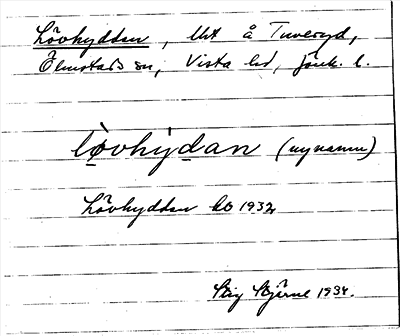 Lövhyddan, lht å Tuveryd,
Ölmstads sn, Vista hd, Jönk. l.
lövhyd̬an (nynamn)
Lövhyddan hs 1932
Stig Stjerne 1934.